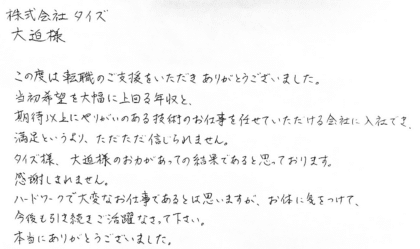 株式会社 タイズ
大迫様
この度は転職のご支援をいただきありがとうございました。
当初希望を大幅に上回る年収と、
期待以上にやりがいのある技術のお仕事を任せていただける会社に入社でき、
満足というより、ただただ信じられません。
タイズ様、大迫様のお力があっての結果であると思っております。
感謝しきれません。
ハードワークで大変なお仕事であるとは思いますが、お体に気をつけて、
今後も引き続きご活躍なさって下さい。
本当にありがとうございました。